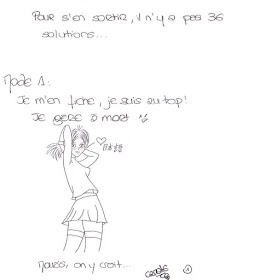 Pour s'en sortir, il n'y a pas 36
solutions...
Mode 1:
Je m'en fiche, je suis au top!
Je gère à mort
Mouais, on y croit...
1